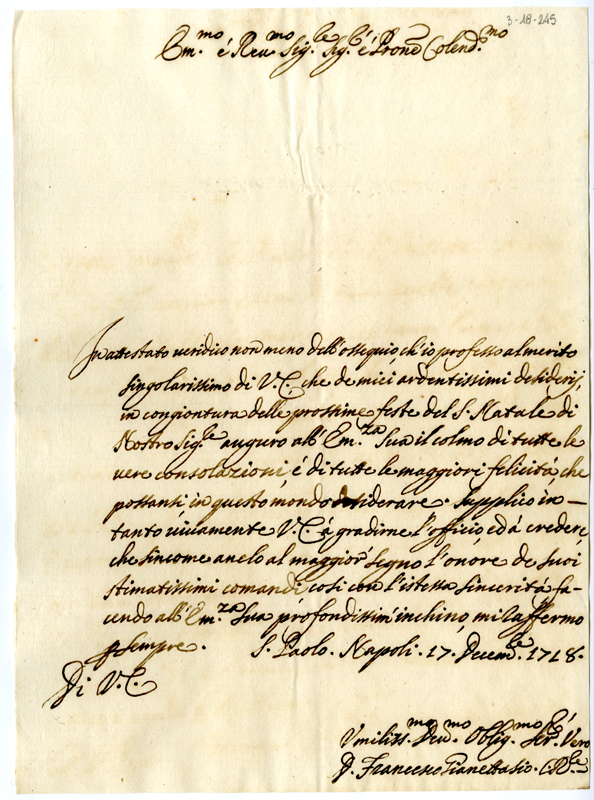 3-18-245
Em.mo é Reu.mo Sig.re Sig.re é Prone Colend.mo
In attestato veridico non meno dell'ossequio, ch'io professo al merito
singolarissimo di V.E. che de miei ardentissimi desiderij,
in congiontura delle prossime feste del S. Natale di
Nostro Sig.re auguro all'Em.za Sua il colmo di tutte le
vere consolazioni, é di tutte le maggiori felicitá, che
possansi in questo mondo desiderare. Supplico in-
tanto uiuamente V.E. á gradirne l'officio, ed á credere,
che sincome anelo al maggior segno l'onore de suoi
stimatissimi comandi, cosi con l'istessa sinceritá fa-
cendo all'Em.za Sua profondissim'inchino, mi raffermo
p sempre. S. Paolo. Napoli. 17. Decem.re 1718.
Di V.E.
Vmiliss.mo Deu.mo Oblig.mo Ser.re Vero
D. Francesco